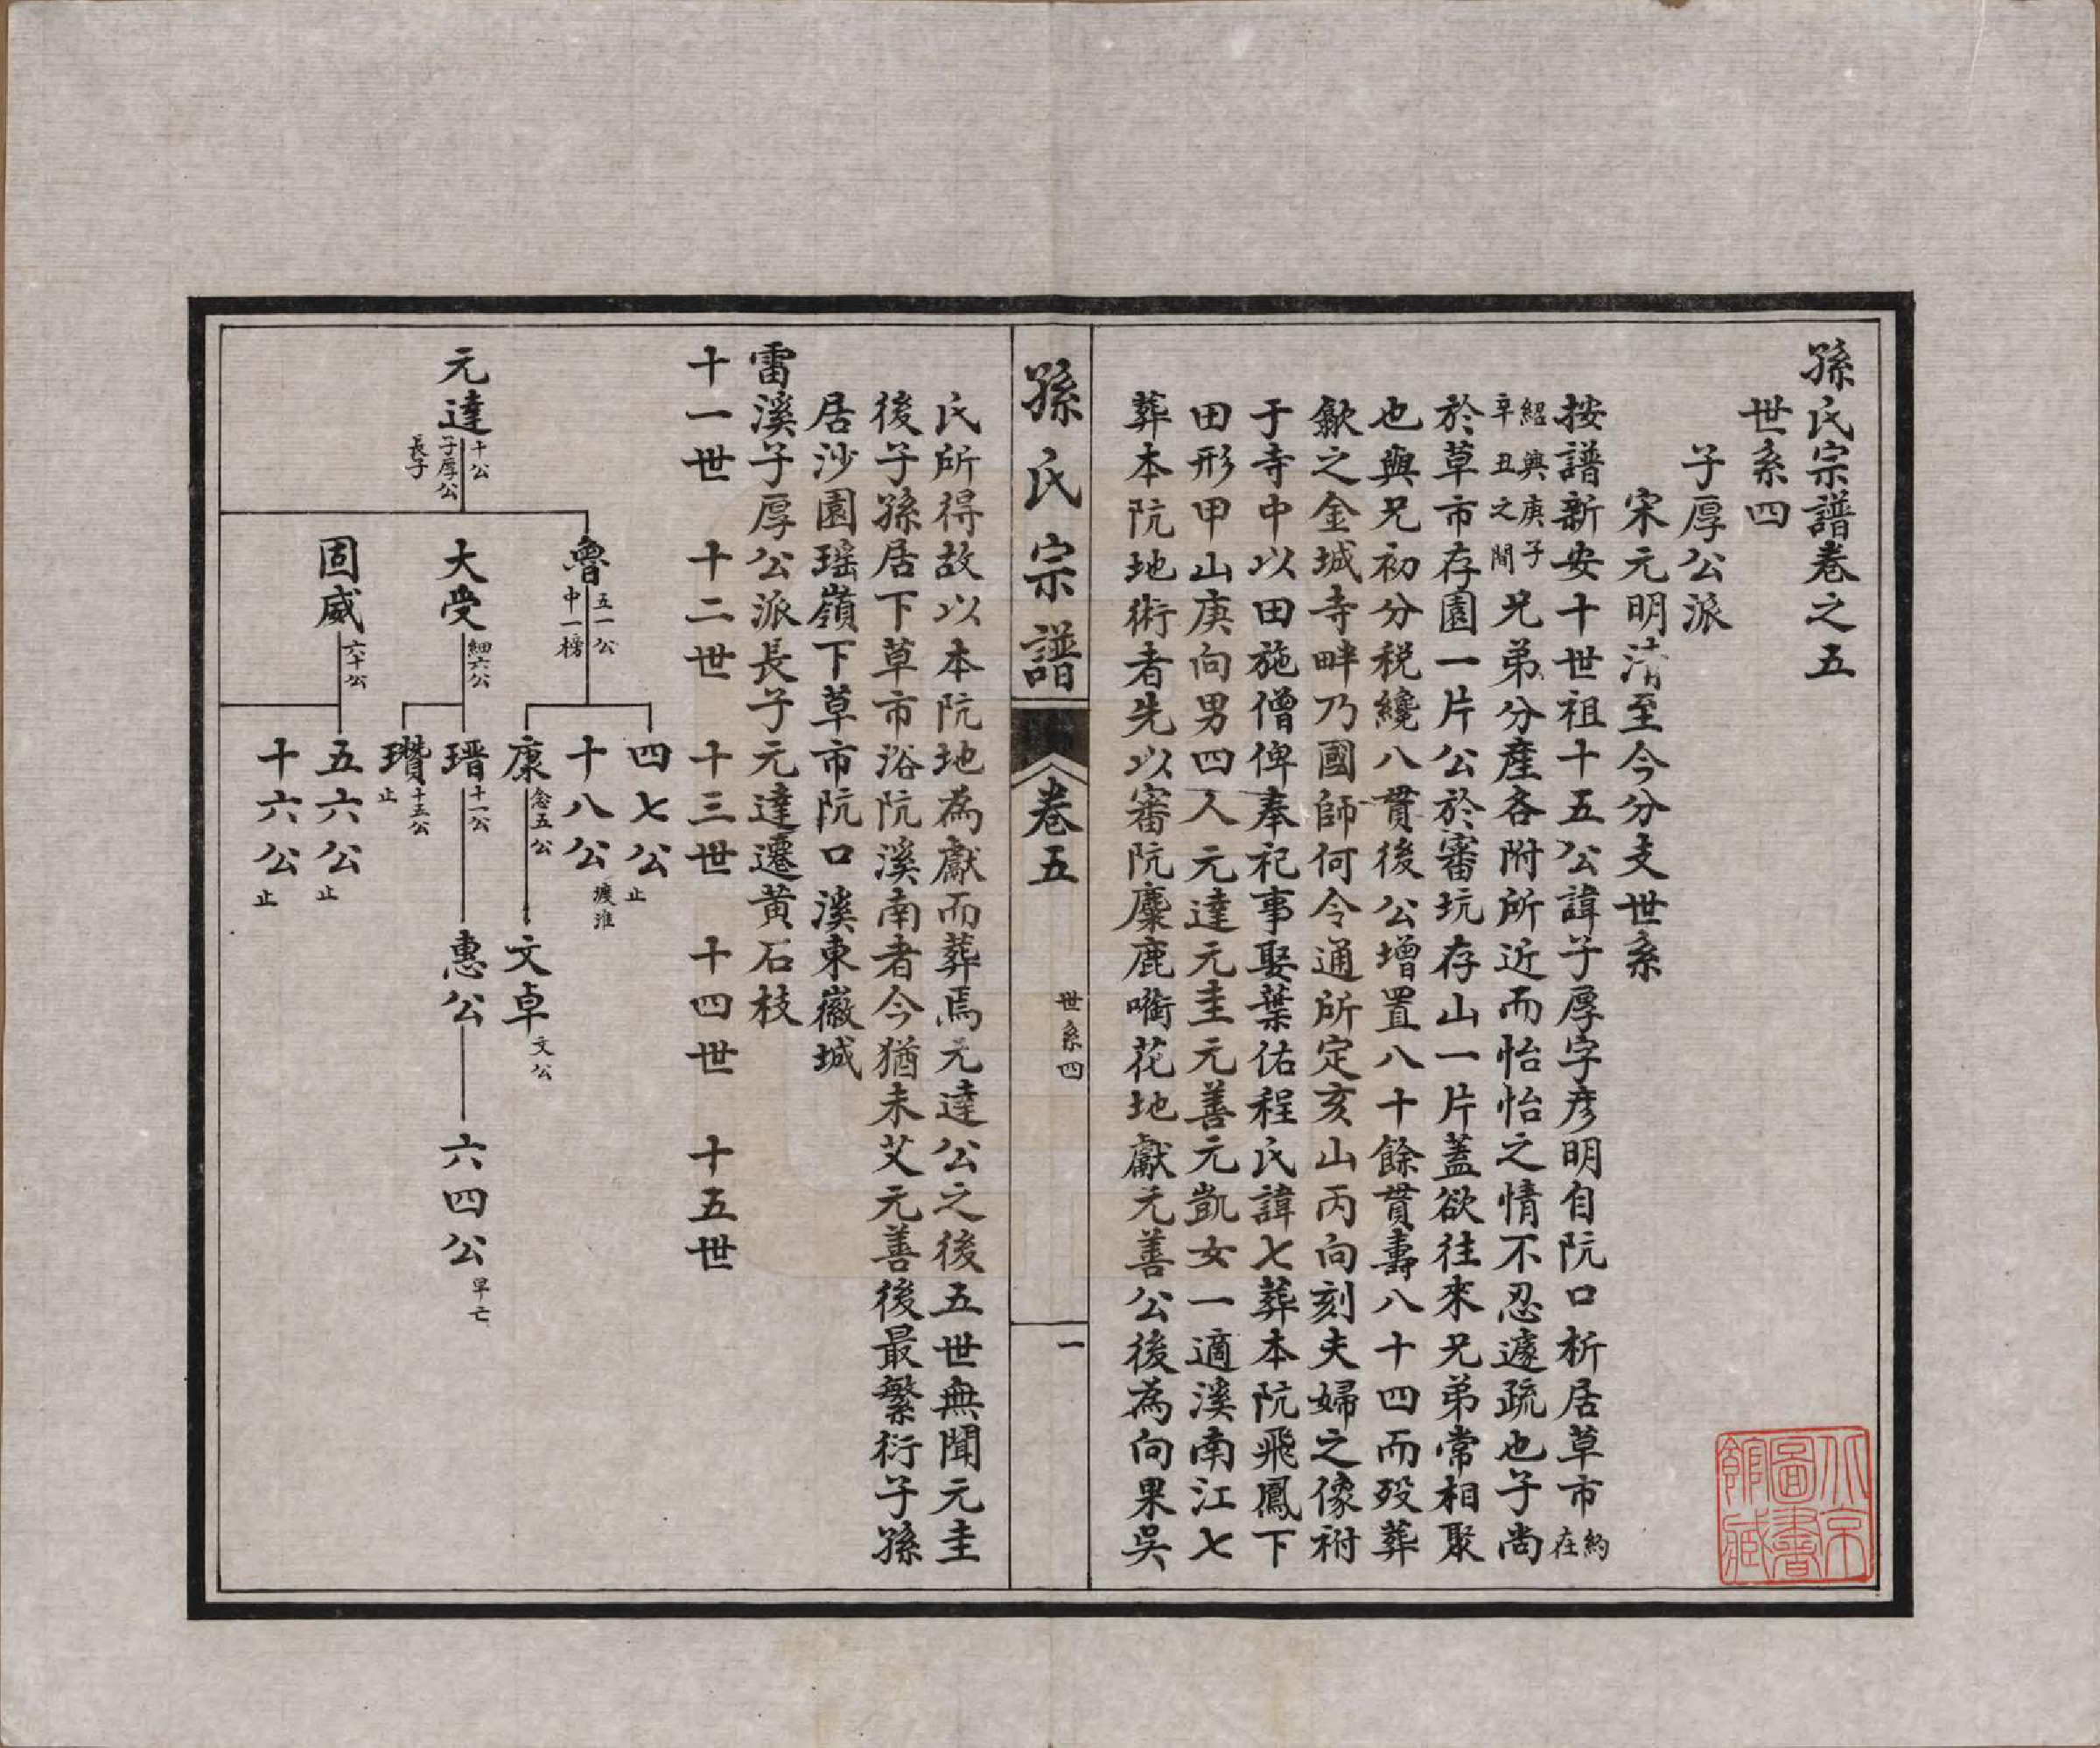 孫氏宗譜卷之五
世系四
子厚公派
宋元明清至今分支世系
按譜新安十世祖十五公諱子厚字彦明自阮口析居草市約在
紹興庚子辛丑之間兄弟分產各附所近而怡怡之情不忍遽疏也子尚
於草市存園一片公於審坑存山一片蓋欲往來兄弟常相聚
也與兄初分税纔八貫後公增置八十餘貫壽八十四而殁葬
歙之金城寺畔乃國師何令通所定亥山丙向刻夫婦之像祔
于寺中以田施僧俾奉祀事娶葉佑程氏諱七葬本阮飛鳳下
田形甲山庚向男四人元達元圭元善元凱女一適溪南江七
葬本阮地術者先以審阮麋鹿啣花地獻元善公後為向杲吳
孫氏宗譜
卷五
世系四
一
氏所得故以本阮地為獻而葬焉元達公之後五世無聞元圭
後子孫居下草市浴阮溪南者今猶未艾元善後最繁衍子孫
居沙園瑶嶺下草市阮口溪東巖城
雷溪子厚公派長子元達遷黃石枝
十一世 十二世 十三世 十四世 十五世
四七公 止
魯 五一公 中一榜 十八公 渡淮
康 念五公 文卓 文公
元達 十公 子厚公長子 大受 細六公 瑨 十一公 惠公 六四公 早亡
瓚 十五公 止
固威 六十公 五六公 止
十六公 止
北京圖書館藏